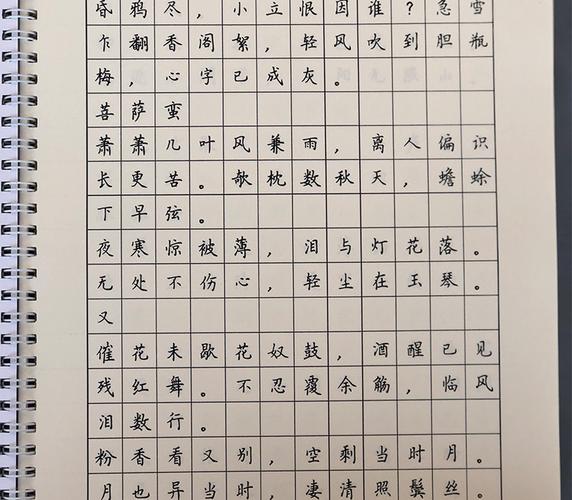 昏鸦尽，小立恨因谁？急雪
乍翻香阁絮，轻风吹到胆瓶
梅，心字已成灰。
菩萨蛮
萧萧几叶风兼雨，离人偏识
长更苦。欹枕数秋天，蟾蜍
下早弦。
夜寒惊被薄，泪与灯花落。
无处不伤心，轻尘在玉琴。
又
催花未歇花奴鼓，酒醒已见
残红舞。不忍覆余觞，临风
泪数行。
粉香看又别，空剩当时月。
月也异当时，凄清照鬓丝。